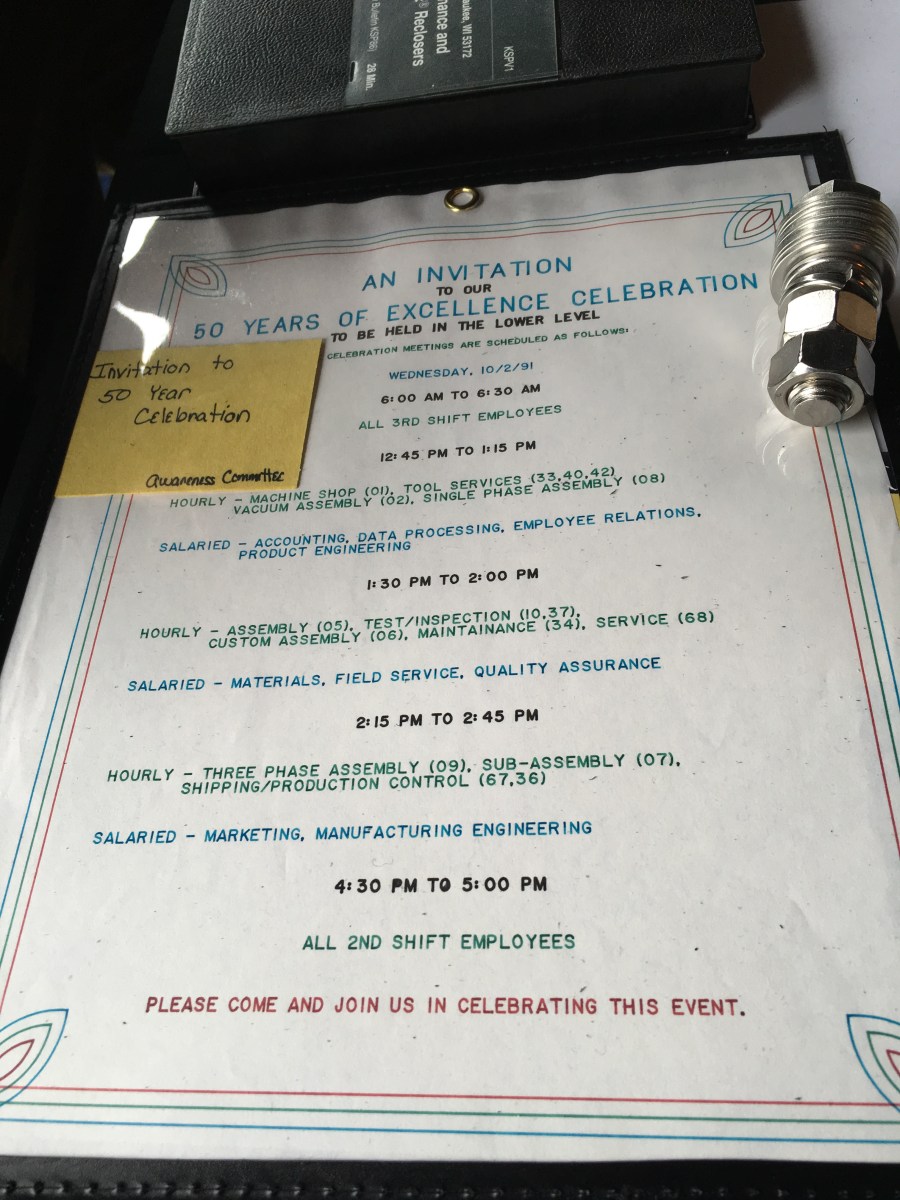 KSPV1
aukee, WI 53172
nance and
® Reclosers
Bulletin KSP86)
28 Min.
AN INVITATION
TO OUR
50 YEARS OF EXCELLENCE CELEBRATION
TO BE HELD IN THE LOWER LEVEL
CELEBRATION MEETINGS ARE SCHEDULED AS FOLLOWS:
Invitation to
50 Year
Celebration
Awareness Committee
WEDNESDAY, 10/2/91
6:00 AM TO 6:30 AM
ALL 3RD SHIFT EMPLOYEES
12:45 PM TO 1:15 PM
HOURLY - MACHINE SHOP (01), TOOL SERVICES (33,40,42)
VACUUM ASSEMBLY (02), SINGLE PHASE ASSEMBLY (08)
SALARIED - ACCOUNTING, DATA PROCESSING, EMPLOYEE RELATIONS,
PRODUCT ENGINEERING
1:30 PM TO 2:00 PM
HOURLY - ASSEMBLY (05), TEST/INSPECTION (10,37),
CUSTOM ASSEMBLY (06), MAINTAINANCE (34), SERVICE (68)
SALARIED - MATERIALS, FIELD SERVICE, QUALITY ASSURANCE
2:15 PM TO 2:45 PM
HOURLY - THREE PHASE ASSEMBLY (09), SUB-ASSEMBLY (07),
SHIPPING/PRODUCTION CONTROL (67,36)
SALARIED - MARKETING, MANUFACTURING ENGINEERING
4:30 PM TO 5:00 PM
ALL 2ND SHIFT EMPLOYEES
PLEASE COME AND JOIN US IN CELEBRATING THIS EVENT.